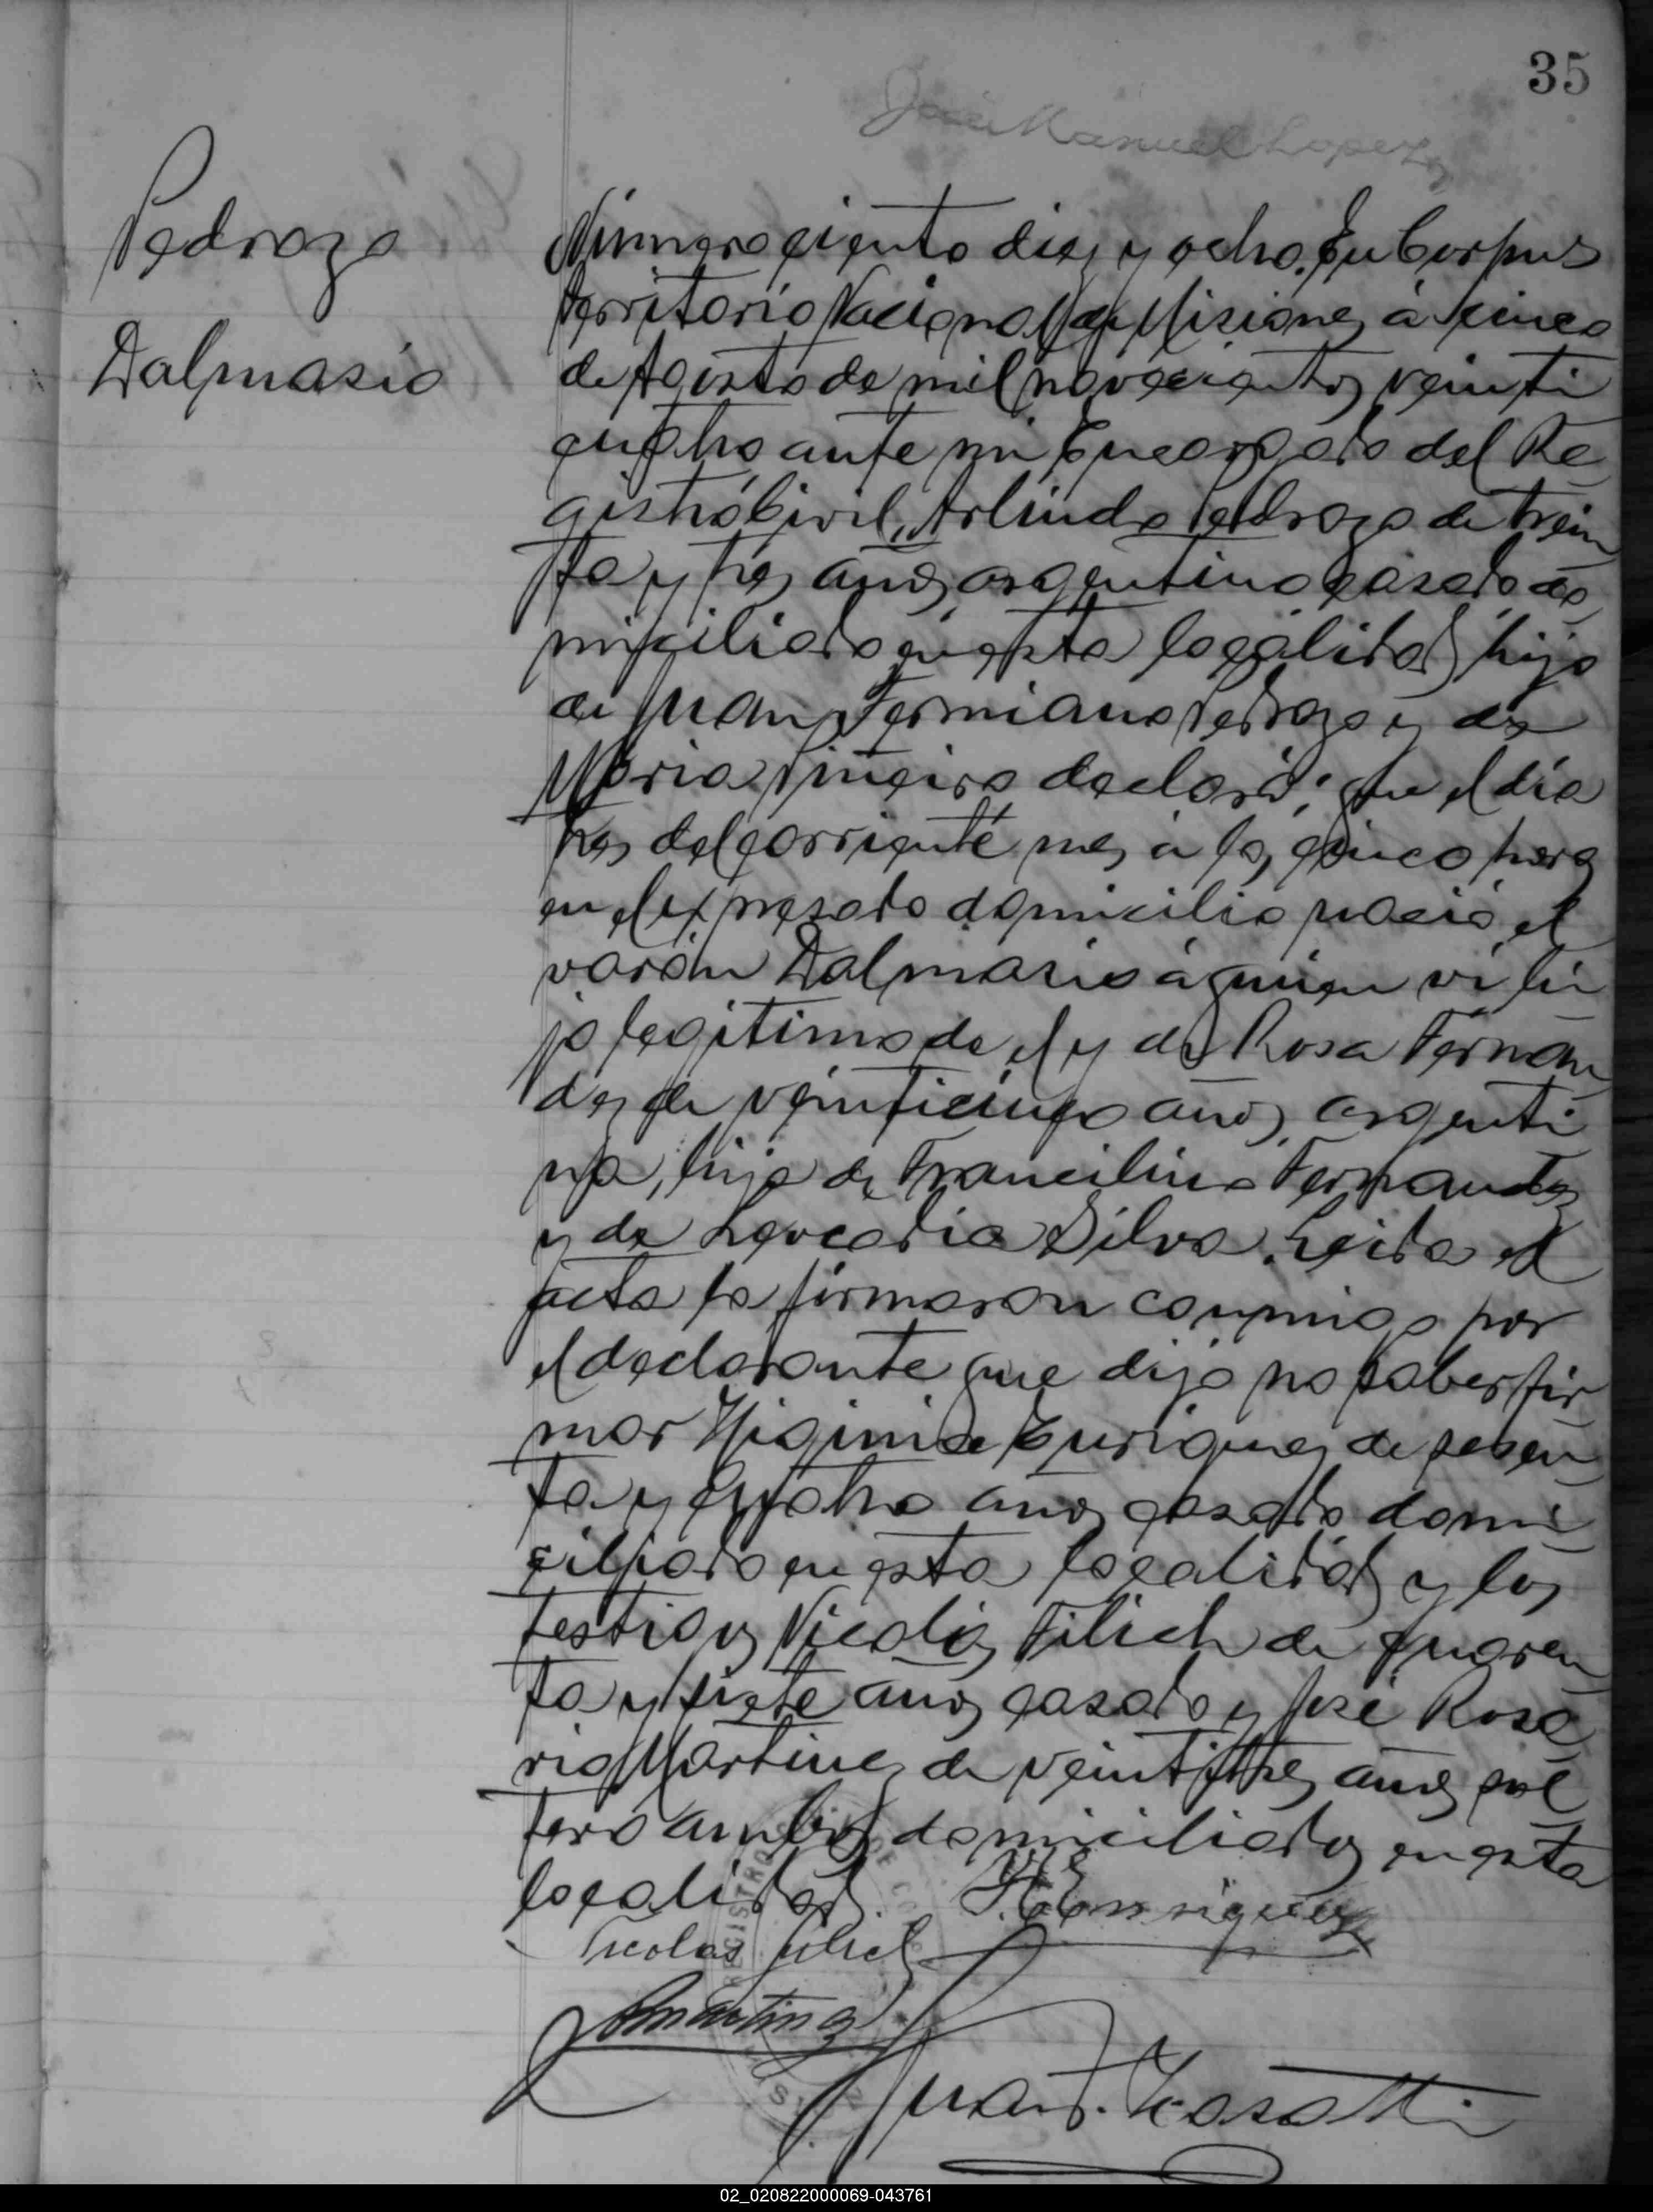 35
José Manuel Lopez
Pedrozo
Dalmasio
Número ciento diez y ocho. En Corpus
territorio Nacional de Misiones, á cinco
de Agosto de mil novecientos veinti
cuatro ante mi Encargado del Re
gistro Civil, Arlindo Pedrozo de trein
ta y tres años argentino casado do
miciliado en esta localidad hijo
de Juan Fermiano Pedrozo y de
Maria Piñeiro declaró: que el dia
tres del corriente mes á las cinco horas
en el expresado domicilio nació el
varón Dalmasio á quien ví hi
jo legitimo de el y de Rosa Fernán
dez de veinticinco años argenti
na, hija de Francilino Fernandez
y de Leocadia Silva. Leida el
acta la firmaron conmigo por
el declarante que dijo no saber fir
mar Higinio Enriquez de sesen
ta y cuatro años casado domi
ciliado en esta localidad y los
testigos Nicolás Filich de cuaren
ta y siete años casado y José Rosa
rio Martinez de veintitres años sol
tero ambos domiciliados en esta
localidad. H Enriquez
Nicolas Filich
Martinez
Juan
02_020822000069-043761